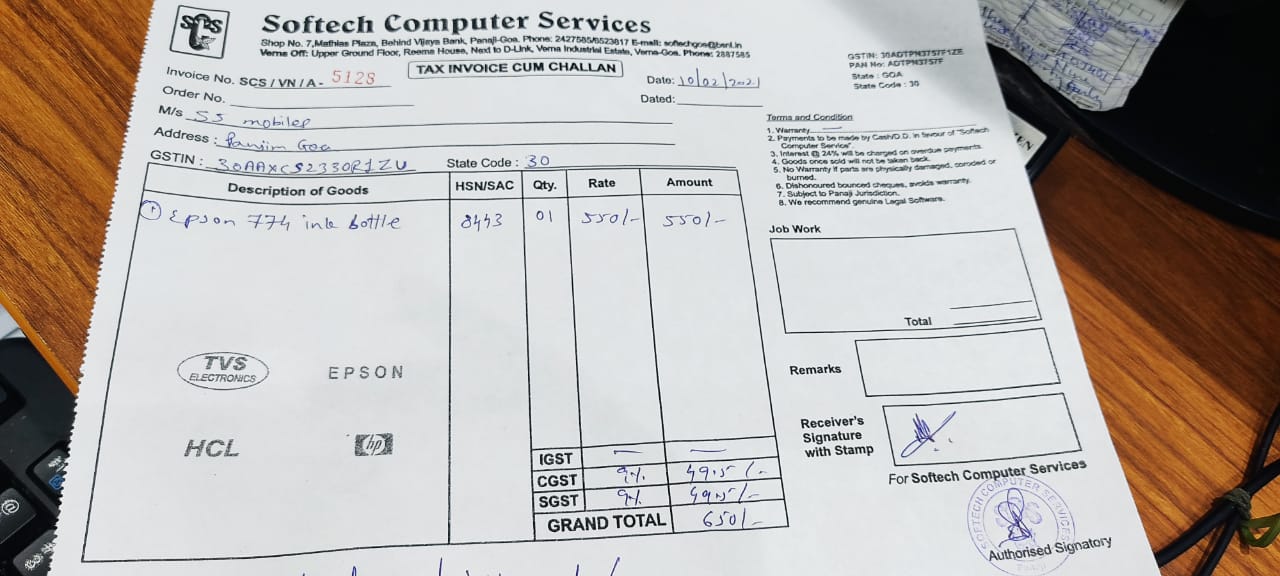 SCS
Softech Computer Services
Shop No. 7,Mathias Plaza, Behind Vijaya Bank, Panaji-Goa. Phone: 2427585/6523817 E-mail: softechgoa@bsnl.in
Verna Off: Upper Ground Floor, Reema House, Next to D-Link, Verna Industrial Estate, Verna-Goa. Phone: 2887585
TAX INVOICE CUM CHALLAN
GSTIN: 30ADTPN3757F1ZE
PAN No: ADTPN3757F
State : GOA
State Code : 30
Invoice No. SCS / VN / A - 5128
Date: 10/02/2021
Order No.
Dated:
M/s SS mobiles
Address : Panjim Goa
GSTIN : 30AAXCS2330R1ZU State Code : 30
Description of Goods HSN/SAC Qty. Rate Amount
1 Epson 774 ink bottle 8443 01 550/- 550/-
TVS
ELECTRONICS
EPSON
HCL
hp
IGST — —
CGST 9% 49.5/-
SGST 9% 49.5/-
GRAND TOTAL 650/-
Terms and Condition
1. Warranty
2. Payments to be made by Cash/D.D. in favour of "Softech
Computer Service".
3. Interest @ 24% will be charged on overdue payments.
4. Goods once sold will not be taken back.
5. No Warranty if parts are physically damaged, coroded or
burned.
6. Dishonoured bounced cheques, avoids warranty.
7. Subject to Panaji Jurisdiction.
8. We recommend genuine Legal Software.
Job Work
Total
Remarks
Receiver's
Signature
with Stamp
For Softech Computer Services
SOFTECH COMPUTER SERVICES
Panaji
Authorised Signatory